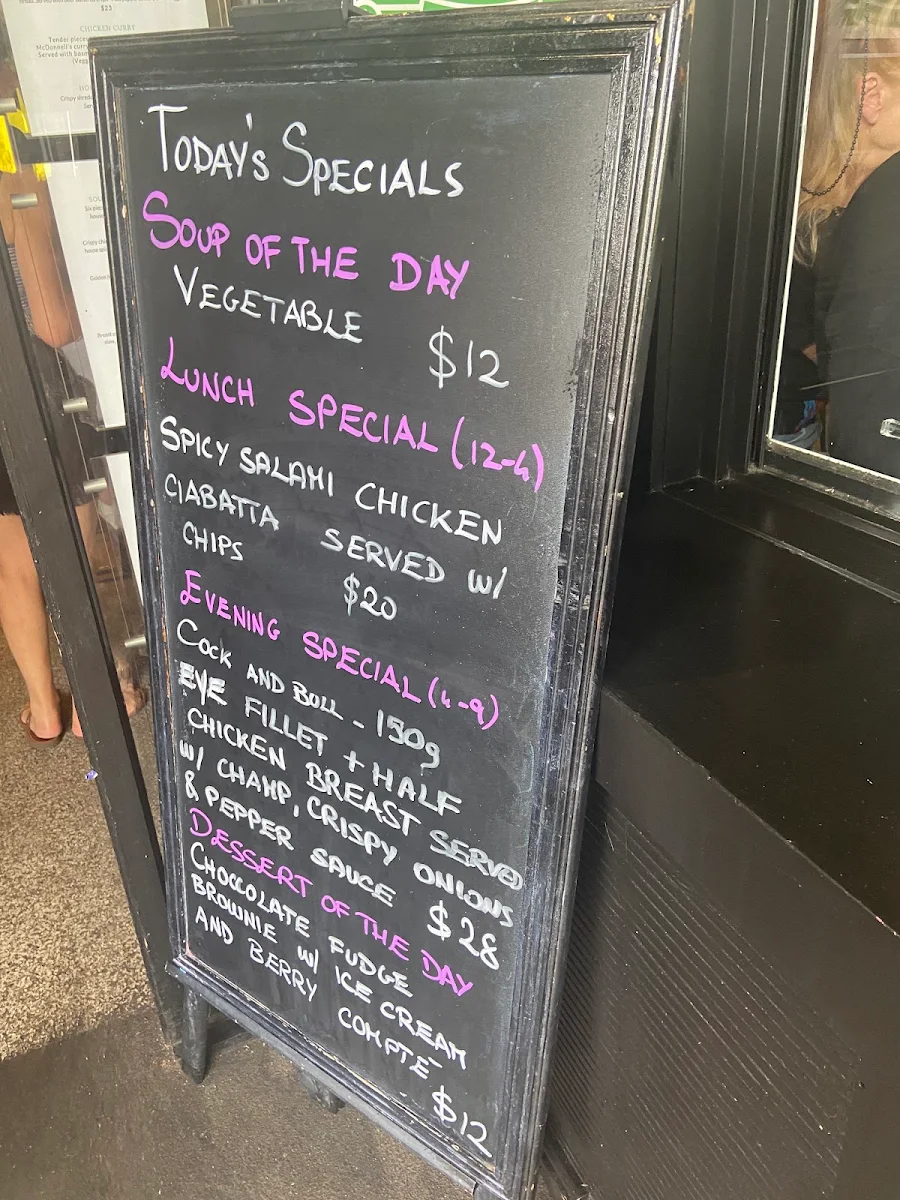 $23
CHICKEN CURRY
Tender pieces
McDonnell's curry
Served with
Crispy
TODAY'S SPECIALS
SOUP OF THE DAY
VEGETABLE
$12
LUNCH SPECIAL (12-4)
SPICY SALAMI CHICKEN
CIABATTA SERVED W/
CHIPS
$20
EVENING SPECIAL (4-9)
COCK AND BULL - 150g
EYE FILLET + HALF
CHICKEN BREAST SERVED
W/ CHAMP, CRISPY ONIONS
& PEPPER SAUCE
$28
DESSERT OF THE DAY
CHOCCOLATE FUDGE
BROWNIE W/ ICE CREAM
AND BERRY COMPTE
$12